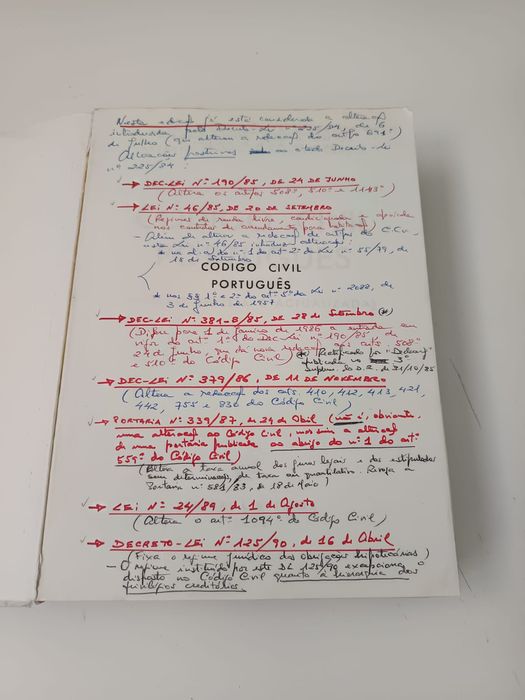 Nesta edição já está considerada a alteração
introduzida pelo Decreto-Lei nº 225/84, de 6
de Julho (que alterou a redacção do artigo 691º)
Alterações posteriores ao citado Decreto-Lei
nº 225/84:
→ DEC-LEI Nº 190/85, DE 24 DE JUNHO
(Altera os artigos 508º, 510º e 1143º)
→ LEI Nº 46/85, DE 20 DE SETEMBRO
(Regimes de renda livre, condicionada e apoiada
nos contratos de arrendamento para habitação)
- Além de alterar a redacção de artigos do C.Civ.,
esta Lei nº 46/85 introduz alterações:
* no nº 1 do artº 2º da Lei nº 55/79, de
15 de Setembro
CÓDIGO CIVIL
PORTUGUÊS
* nos §§ 1º e 2º do artº 5º da Lei nº 2088, de
3 de Junho de 1957
→ DEC-LEI Nº 381-B/85, DE 28 de Setembro (*)
(Difere para 1 de Janeiro de 1986 a entrada em
vigor do artº 1º do Dec-Lei nº 190/85 de
24 de Junho, que dá nova redacção aos arts. 508º
e 510º do Código Civil)
(*) Rectificado por "Declaração"
publicada no 3º
Suplem. ao D.R. de 31/10/85
→ DEC-LEI Nº 379/86, DE 11 DE NOVEMBRO
(Altera a redacção dos arts. 410, 412, 413, 421,
442, 755 e 830 do Código Civil)
→ PORTARIA Nº 339/87, de 24 de Abril (não é, obviamente,
uma alteração ao Código Civil, mas sim a alteração
de uma portaria publicada ao abrigo do nº 1 do artº
559º do Código Civil)
(Altera a taxa anual dos juros legais e dos estipulados
sem determinação de taxa ou quantitativo. Revoga a
Portaria nº 581/83, de 18 de Maio)
→ LEI Nº 24/89, de 1 de Agosto
(Altera o artº 1094º do Código Civil)
→ DECRETO-LEI Nº 125/90, de 16 de Abril
(Fixa o regime jurídico das obrigações hipotecárias)
- O regime instituído por este DL 125/90 excepciona o
disposto no Código Civil quanto à hierarquia dos
privilégios creditórios.